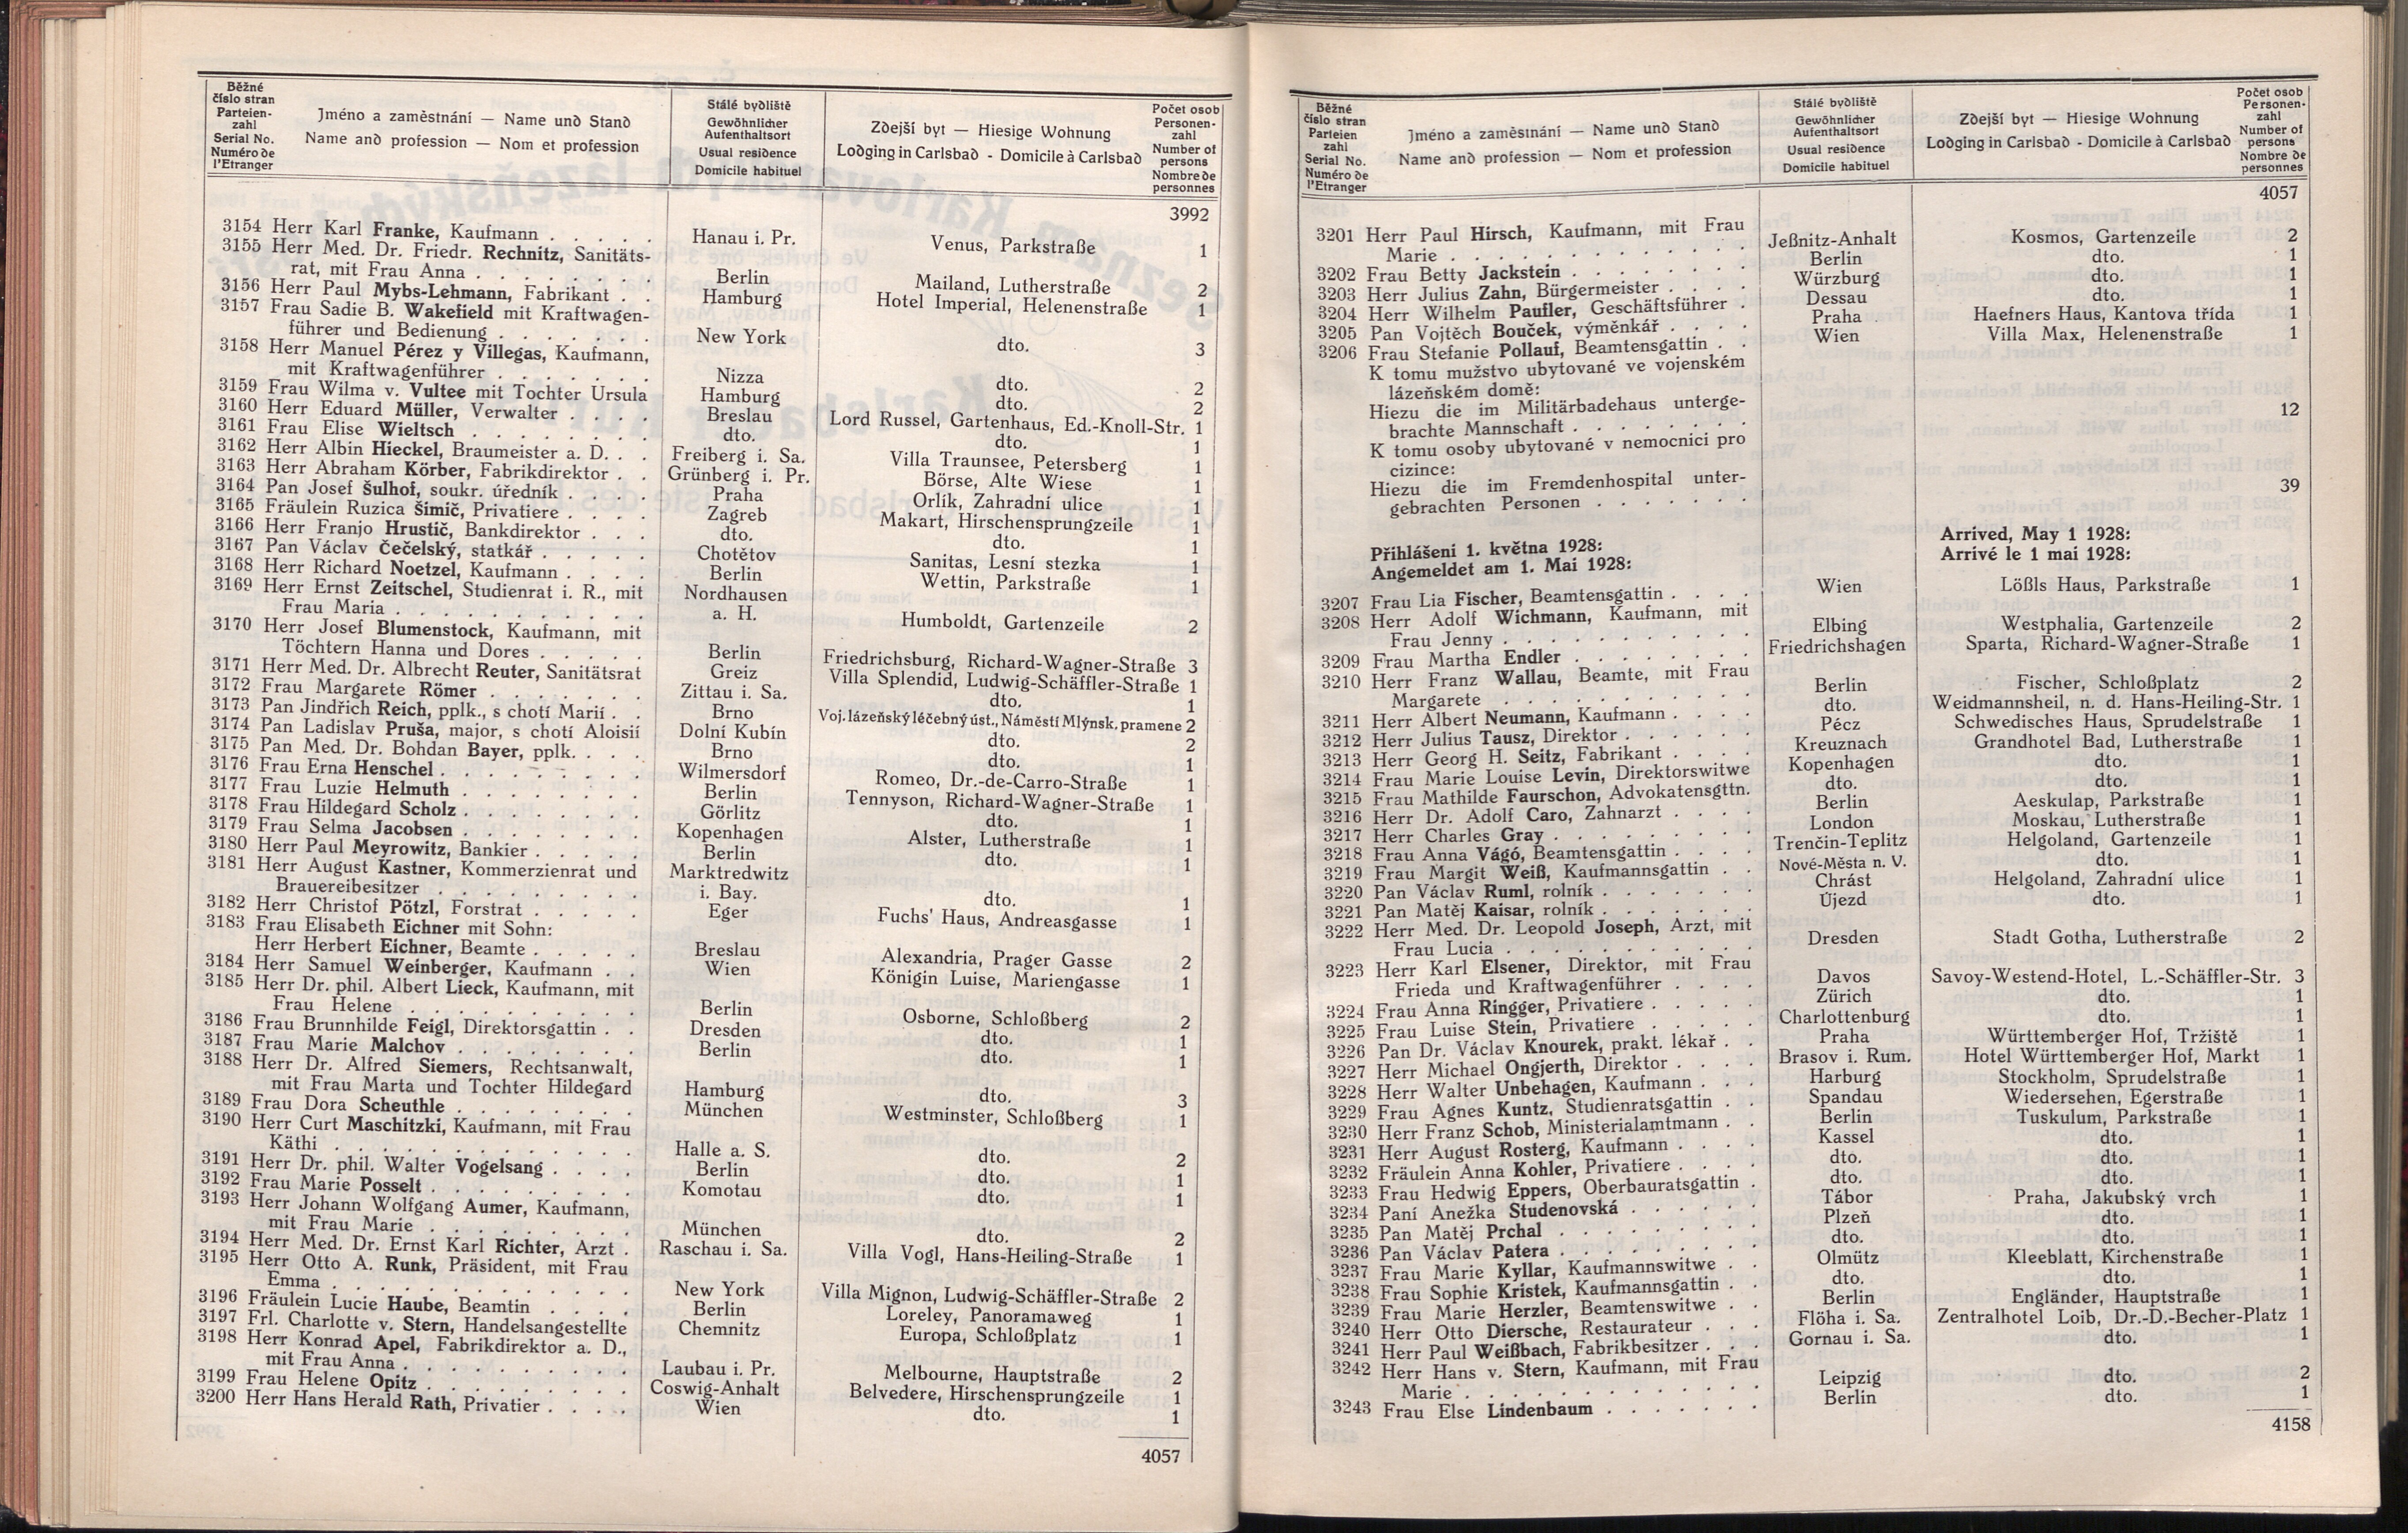 Běžné číslo stran
Parteien-zahl
Serial No.
Numéro de l'Etranger
Jméno a zaměstnání — Name und Stand
Name and profession — Nom et profession
Stálé bydliště
Gewöhnlicher Aufenthaltsort
Usual residence
Domicile habituel
Zdejší byt — Hiesige Wohnung
Lodging in Carlsbad - Domicile à Carlsbad
Počet osob
Personen-zahl
Number of persons
Nombre de personnes
3992
3154 Herr Karl Franke, Kaufmann . . . . . Hanau i. Pr. Venus, Parkstraße 1
3155 Herr Med. Dr. Friedr. Rechnitz, Sanitäts-
rat, mit Frau Anna . . . . . . . . Berlin Mailand, Lutherstraße 2
3156 Herr Paul Mybs-Lehmann, Fabrikant . . Hamburg Hotel Imperial, Helenenstraße 1
3157 Frau Sadie B. Wakefield mit Kraftwagen-
führer und Bedienung . . . . . . . New York dto. 3
3158 Herr Manuel Pérez y Villegas, Kaufmann,
mit Kraftwagenführer . . . . . . . Nizza dto. 2
3159 Frau Wilma v. Vultee mit Tochter Ursula Hamburg dto. 2
3160 Herr Eduard Müller, Verwalter . . . . Breslau Lord Russel, Gartenhaus, Ed.-Knoll-Str. 1
3161 Frau Elise Wieltsch . . . . . . . . dto. dto. 1
3162 Herr Albin Hieckel, Braumeister a. D. . . Freiberg i. Sa. Villa Traunsee, Petersberg 1
3163 Herr Abraham Körber, Fabrikdirektor . . Grünberg i. Pr. Börse, Alte Wiese 1
3164 Pan Josef Šulhof, soukr. úředník . . . . Praha Orlík, Zahradní ulice 1
3165 Fräulein Ruzica Šimič, Privatiere . . . . Zagreb Makart, Hirschensprungzeile 1
3166 Herr Franjo Hrustič, Bankdirektor . . . dto. dto. 1
3167 Pan Václav Čečelský, statkář . . . . . Chotětov Sanitas, Lesní stezka 1
3168 Herr Richard Noetzel, Kaufmann . . . . Berlin Wettin, Parkstraße 1
3169 Herr Ernst Zeitschel, Studienrat i. R., mit Nordhausen
Frau Maria . . . . . . . . . . . a. H. Humboldt, Gartenzeile 2
3170 Herr Josef Blumenstock, Kaufmann, mit
Töchtern Hanna und Dores . . . . . Berlin Friedrichsburg, Richard-Wagner-Straße 3
3171 Herr Med. Dr. Albrecht Reuter, Sanitätsrat Greiz Villa Splendid, Ludwig-Schäffler-Straße 1
3172 Frau Margarete Römer . . . . . . . Zittau i. Sa. dto. 1
3173 Pan Jindřich Reich, pplk., s chotí Marií . . Brno Voj. lázeňský léčebný úst., Náměstí Mlýnsk. pramene 2
3174 Pan Ladislav Pruša, major, s chotí Aloisií Dolní Kubín dto. 2
3175 Pan Med. Dr. Bohdan Bayer, pplk. . . . Brno dto. 1
3176 Frau Erna Henschel . . . . . . . . Wilmersdorf Romeo, Dr.-de-Carro-Straße 1
3177 Frau Luzie Helmuth . . . . . . . . Berlin Tennyson, Richard-Wagner-Straße 1
3178 Frau Hildegard Scholz . . . . . . . Görlitz dto. 1
3179 Frau Selma Jacobsen . . . . . . . . Kopenhagen Alster, Lutherstraße 1
3180 Herr Paul Meyrowitz, Bankier . . . . . Berlin dto. 1
3181 Herr August Kastner, Kommerzienrat und Marktredwitz
Brauereibesitzer . . . . . . . . . i. Bay. dto. 1
3182 Herr Christof Pötzl, Forstrat . . . . . Eger Fuchs' Haus, Andreasgasse 1
3183 Frau Elisabeth Eichner mit Sohn:
Herr Herbert Eichner, Beamte . . . . . Breslau Alexandria, Prager Gasse 2
3184 Herr Samuel Weinberger, Kaufmann . . Wien Königin Luise, Mariengasse 1
3185 Herr Dr. phil. Albert Lieck, Kaufmann, mit
Frau Helene . . . . . . . . . . Berlin Osborne, Schloßberg 2
3186 Frau Brunnhilde Feigl, Direktorsgattin . . Dresden dto. 1
3187 Frau Marie Malchov . . . . . . . . Berlin dto. 1
3188 Herr Dr. Alfred Siemers, Rechtsanwalt,
mit Frau Marta und Tochter Hildegard Hamburg dto. 3
3189 Frau Dora Scheuthle . . . . . . . . München Westminster, Schloßberg 1
3190 Herr Curt Maschitzki, Kaufmann, mit Frau
Käthi . . . . . . . . . . . . . Halle a. S. dto. 2
3191 Herr Dr. phil. Walter Vogelsang . . . . Berlin dto. 1
3192 Frau Marie Posselt . . . . . . . . . Komotau dto. 1
3193 Herr Johann Wolfgang Aumer, Kaufmann,
mit Frau Marie . . . . . . . . . . München dto. 2
3194 Herr Med. Dr. Ernst Karl Richter, Arzt . Raschau i. Sa. Villa Vogl, Hans-Heiling-Straße 1
3195 Herr Otto A. Runk, Präsident, mit Frau
Emma . . . . . . . . . . . . . New York Villa Mignon, Ludwig-Schäffler-Straße 2
3196 Fräulein Lucie Haube, Beamtin . . . . Berlin Loreley, Panoramaweg 1
3197 Frl. Charlotte v. Stern, Handelsangestellte Chemnitz Europa, Schloßplatz 1
3198 Herr Konrad Apel, Fabrikdirektor a. D.,
mit Frau Anna . . . . . . . . . . Laubau i. Pr. Melbourne, Hauptstraße 2
3199 Frau Helene Opitz . . . . . . . . . Coswig-Anhalt Belvedere, Hirschensprungzeile 1
3200 Herr Hans Herald Rath, Privatier . . . . Wien dto. 1
4057
Běžné číslo stran
Parteien zahl
Serial No.
Numéro de l'Etranger
Jméno a zaměstnání — Name und Stand
Name and profession — Nom et profession
Stálé bydliště
Gewöhnlicher Aufenthaltsort
Usual residence
Domicile habituel
Zdejší byt — Hiesige Wohnung
Lodging in Carlsbad - Domicile à Carlsbad
Počet osob
Personen-zahl
Number of persons
Nombre de personnes
4057
3201 Herr Paul Hirsch, Kaufmann, mit Frau
Marie . . . . . . . . . . . . . Jeßnitz-Anhalt Kosmos, Gartenzeile 2
3202 Frau Betty Jackstein . . . . . . . . Berlin dto. 1
3203 Herr Julius Zahn, Bürgermeister . . . . Würzburg dto. 1
3204 Herr Wilhelm Paufler, Geschäftsführer . Dessau dto. 1
3205 Pan Vojtěch Bouček, výměnkář . . . . Praha Haefners Haus, Kantova třída 1
3206 Frau Stefanie Pollauf, Beamtensgattin . . Wien Villa Max, Helenenstraße 1
K tomu mužstvo ubytované ve vojenském
lázeňském domě:
Hiezu die im Militärbadehaus unterge-
brachte Mannschaft . . . . . . . . 12
K tomu osoby ubytované v nemocnici pro
cizince:
Hiezu die im Fremdenhospital unter-
gebrachten Personen . . . . . . . 39
Přihlášeni 1. května 1928: Arrived, May 1 1928:
Angemeldet am 1. Mai 1928: Arrivé le 1 mai 1928:
3207 Frau Lia Fischer, Beamtensgattin . . . . Wien Lößls Haus, Parkstraße 1
3208 Herr Adolf Wichmann, Kaufmann, mit
Frau Jenny . . . . . . . . . . . Elbing Westphalia, Gartenzeile 2
3209 Frau Martha Endler . . . . . . . . Friedrichshagen Sparta, Richard-Wagner-Straße 1
3210 Herr Franz Wallau, Beamte, mit Frau
Margarete . . . . . . . . . . . Berlin Fischer, Schloßplatz 2
3211 Herr Albert Neumann, Kaufmann . . . . dto. Weidmannsheil, n. d. Hans-Heiling-Str. 1
3212 Herr Julius Tausz, Direktor . . . . . . Pécz Schwedisches Haus, Sprudelstraße 1
3213 Herr Georg H. Seitz, Fabrikant . . . . Kreuznach Grandhotel Bad, Lutherstraße 1
3214 Frau Marie Louise Levin, Direktorswitwe Kopenhagen dto. 1
3215 Frau Mathilde Faurschon, Advokatensgttn. dto. dto. 1
3216 Herr Dr. Adolf Caro, Zahnarzt . . . . Berlin Aeskulap, Parkstraße 1
3217 Herr Charles Gray . . . . . . . . . London Moskau, Lutherstraße 1
3218 Frau Anna Vágó, Beamtensgattin . . . . Trenčin-Teplitz Helgoland, Gartenzeile 1
3219 Frau Margit Weiß, Kaufmannsgattin . . Nové-Města n. V. dto. 1
3220 Pan Václav Ruml, rolník . . . . . . Chrást Helgoland, Zahradní ulice 1
3221 Pan Matěj Kaisar, rolník . . . . . . . Újezd dto. 1
3222 Herr Med. Dr. Leopold Joseph, Arzt, mit
Frau Lucia . . . . . . . . . . . Dresden Stadt Gotha, Lutherstraße 2
3223 Herr Karl Elsener, Direktor, mit Frau
Frieda und Kraftwagenführer . . . . Davos Savoy-Westend-Hotel, L.-Schäffler-Str. 3
3224 Frau Anna Ringger, Privatiere . . . . . Zürich dto. 1
3225 Frau Luise Stein, Privatiere . . . . . Charlottenburg dto. 1
3226 Pan Dr. Václav Knourek, prakt. lékař . . Praha Württemberger Hof, Tržiště 1
3227 Herr Michael Ongjerth, Direktor . . . . Brasov i. Rum. Hotel Württemberger Hof, Markt 1
3228 Herr Walter Unbehagen, Kaufmann . . . Harburg Stockholm, Sprudelstraße 1
3229 Frau Agnes Kuntz, Studienratsgattin . . Spandau Wiedersehen, Egerstraße 1
3230 Herr Franz Schob, Ministerialamtmann . . Berlin Tuskulum, Parkstraße 1
3231 Herr August Rosterg, Kaufmann . . . . Kassel dto. 1
3232 Fräulein Anna Kohler, Privatiere . . . . dto. dto. 1
3233 Frau Hedwig Eppers, Oberbauratsgattin . dto. dto. 1
3234 Paní Anežka Studenovská . . . . . . Tábor Praha, Jakubský vrch 1
3235 Pan Matěj Prchal . . . . . . . . . Plzeň dto. 1
3236 Pan Václav Patera . . . . . . . . . dto. dto. 1
3237 Frau Marie Kyllar, Kaufmannswitwe . . Olmütz Kleeblatt, Kirchenstraße 1
3238 Frau Sophie Kristek, Kaufmannsgattin . dto. dto. 1
3239 Frau Marie Herzler, Beamtenswitwe . . Berlin Engländer, Hauptstraße 1
3240 Herr Otto Diersche, Restaurateur . . . Flöha i. Sa. Zentralhotel Loib, Dr.-D.-Becher-Platz 1
3241 Herr Paul Weißbach, Fabrikbesitzer . . . Gornau i. Sa. dto. 1
3242 Herr Hans v. Stern, Kaufmann, mit Frau
Marie . . . . . . . . . . . . . Leipzig dto. 2
3243 Frau Else Lindenbaum . . . . . . . Berlin dto. 1
4158